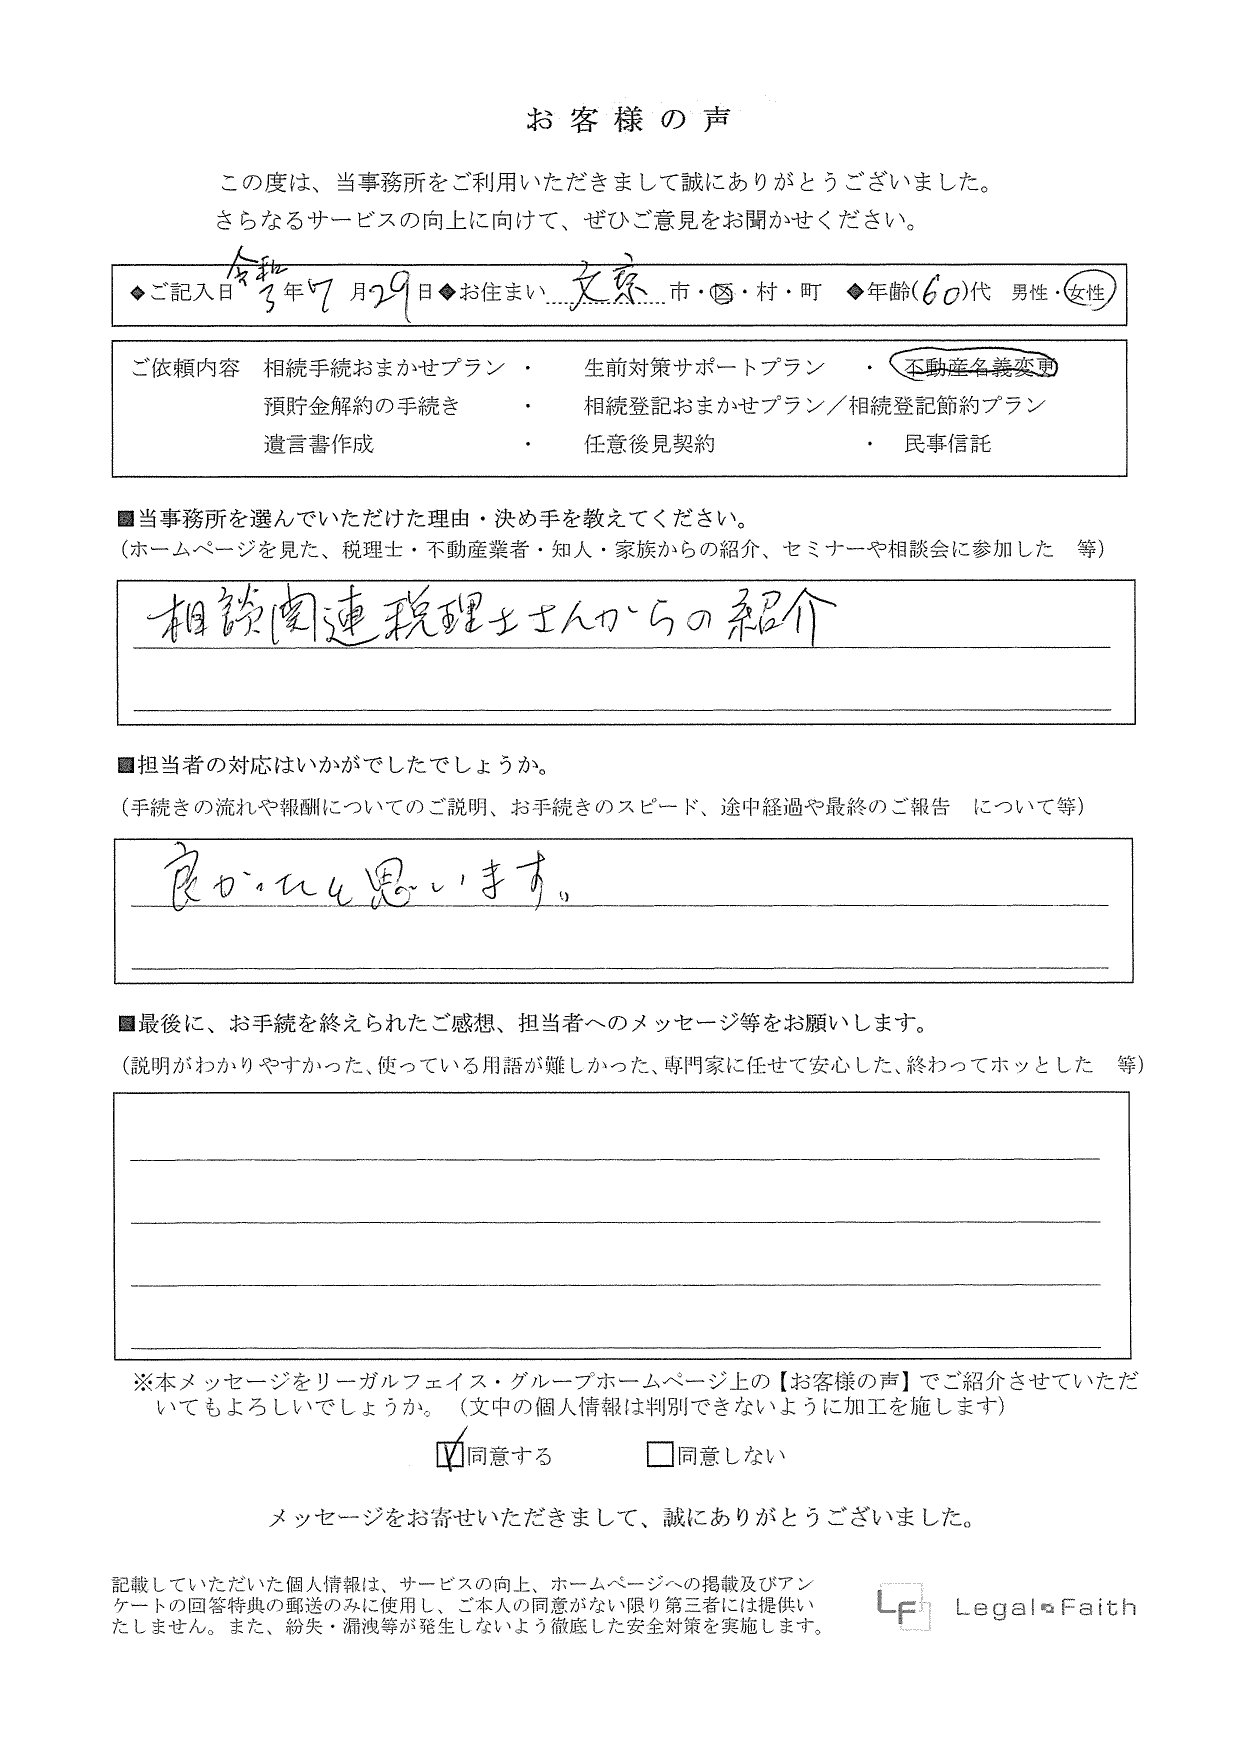 お客様の声
この度は、当事務所をご利用いただきまして誠にありがとうございました。
さらなるサービスの向上に向けて、ぜひご意見をお聞かせください。
◆ご記入日 令和3年7月29日◆お住まい 文京 市・区・村・町 ◆年齢(60)代 男性・女性
ご依頼内容 相続手続おまかせプラン ・ 生前対策サポートプラン ・ 不動産名義変更
預貯金解約の手続き ・ 相続登記おまかせプラン／相続登記節約プラン
遺言書作成 ・ 任意後見契約 ・ 民事信託
■当事務所を選んでいただけた理由・決め手を教えてください。
（ホームページを見た、税理士・不動産業者・知人・家族からの紹介、セミナーや相談会に参加した 等）
相談関連税理士さんからの紹介
■担当者の対応はいかがでしたでしょうか。
（手続きの流れや報酬についてのご説明、お手続きのスピード、途中経過や最終のご報告 について等）
良かったと思います。
■最後に、お手続を終えられたご感想、担当者へのメッセージ等をお願いします。
（説明がわかりやすかった、使っている用語が難しかった、専門家に任せて安心した、終わってホッとした 等）
※本メッセージをリーガルフェイス・グループホームページ上の【お客様の声】でご紹介させていただ
いてもよろしいでしょうか。（文中の個人情報は判別できないように加工を施します）
☑同意する □同意しない
メッセージをお寄せいただきまして、誠にありがとうございました。
記載していただいた個人情報は、サービスの向上、ホームページへの掲載及びアン
ケートの回答特典の郵送のみに使用し、ご本人の同意がない限り第三者には提供い
たしません。また、紛失・漏洩等が発生しないよう徹底した安全対策を実施します。
LF Legal Faith